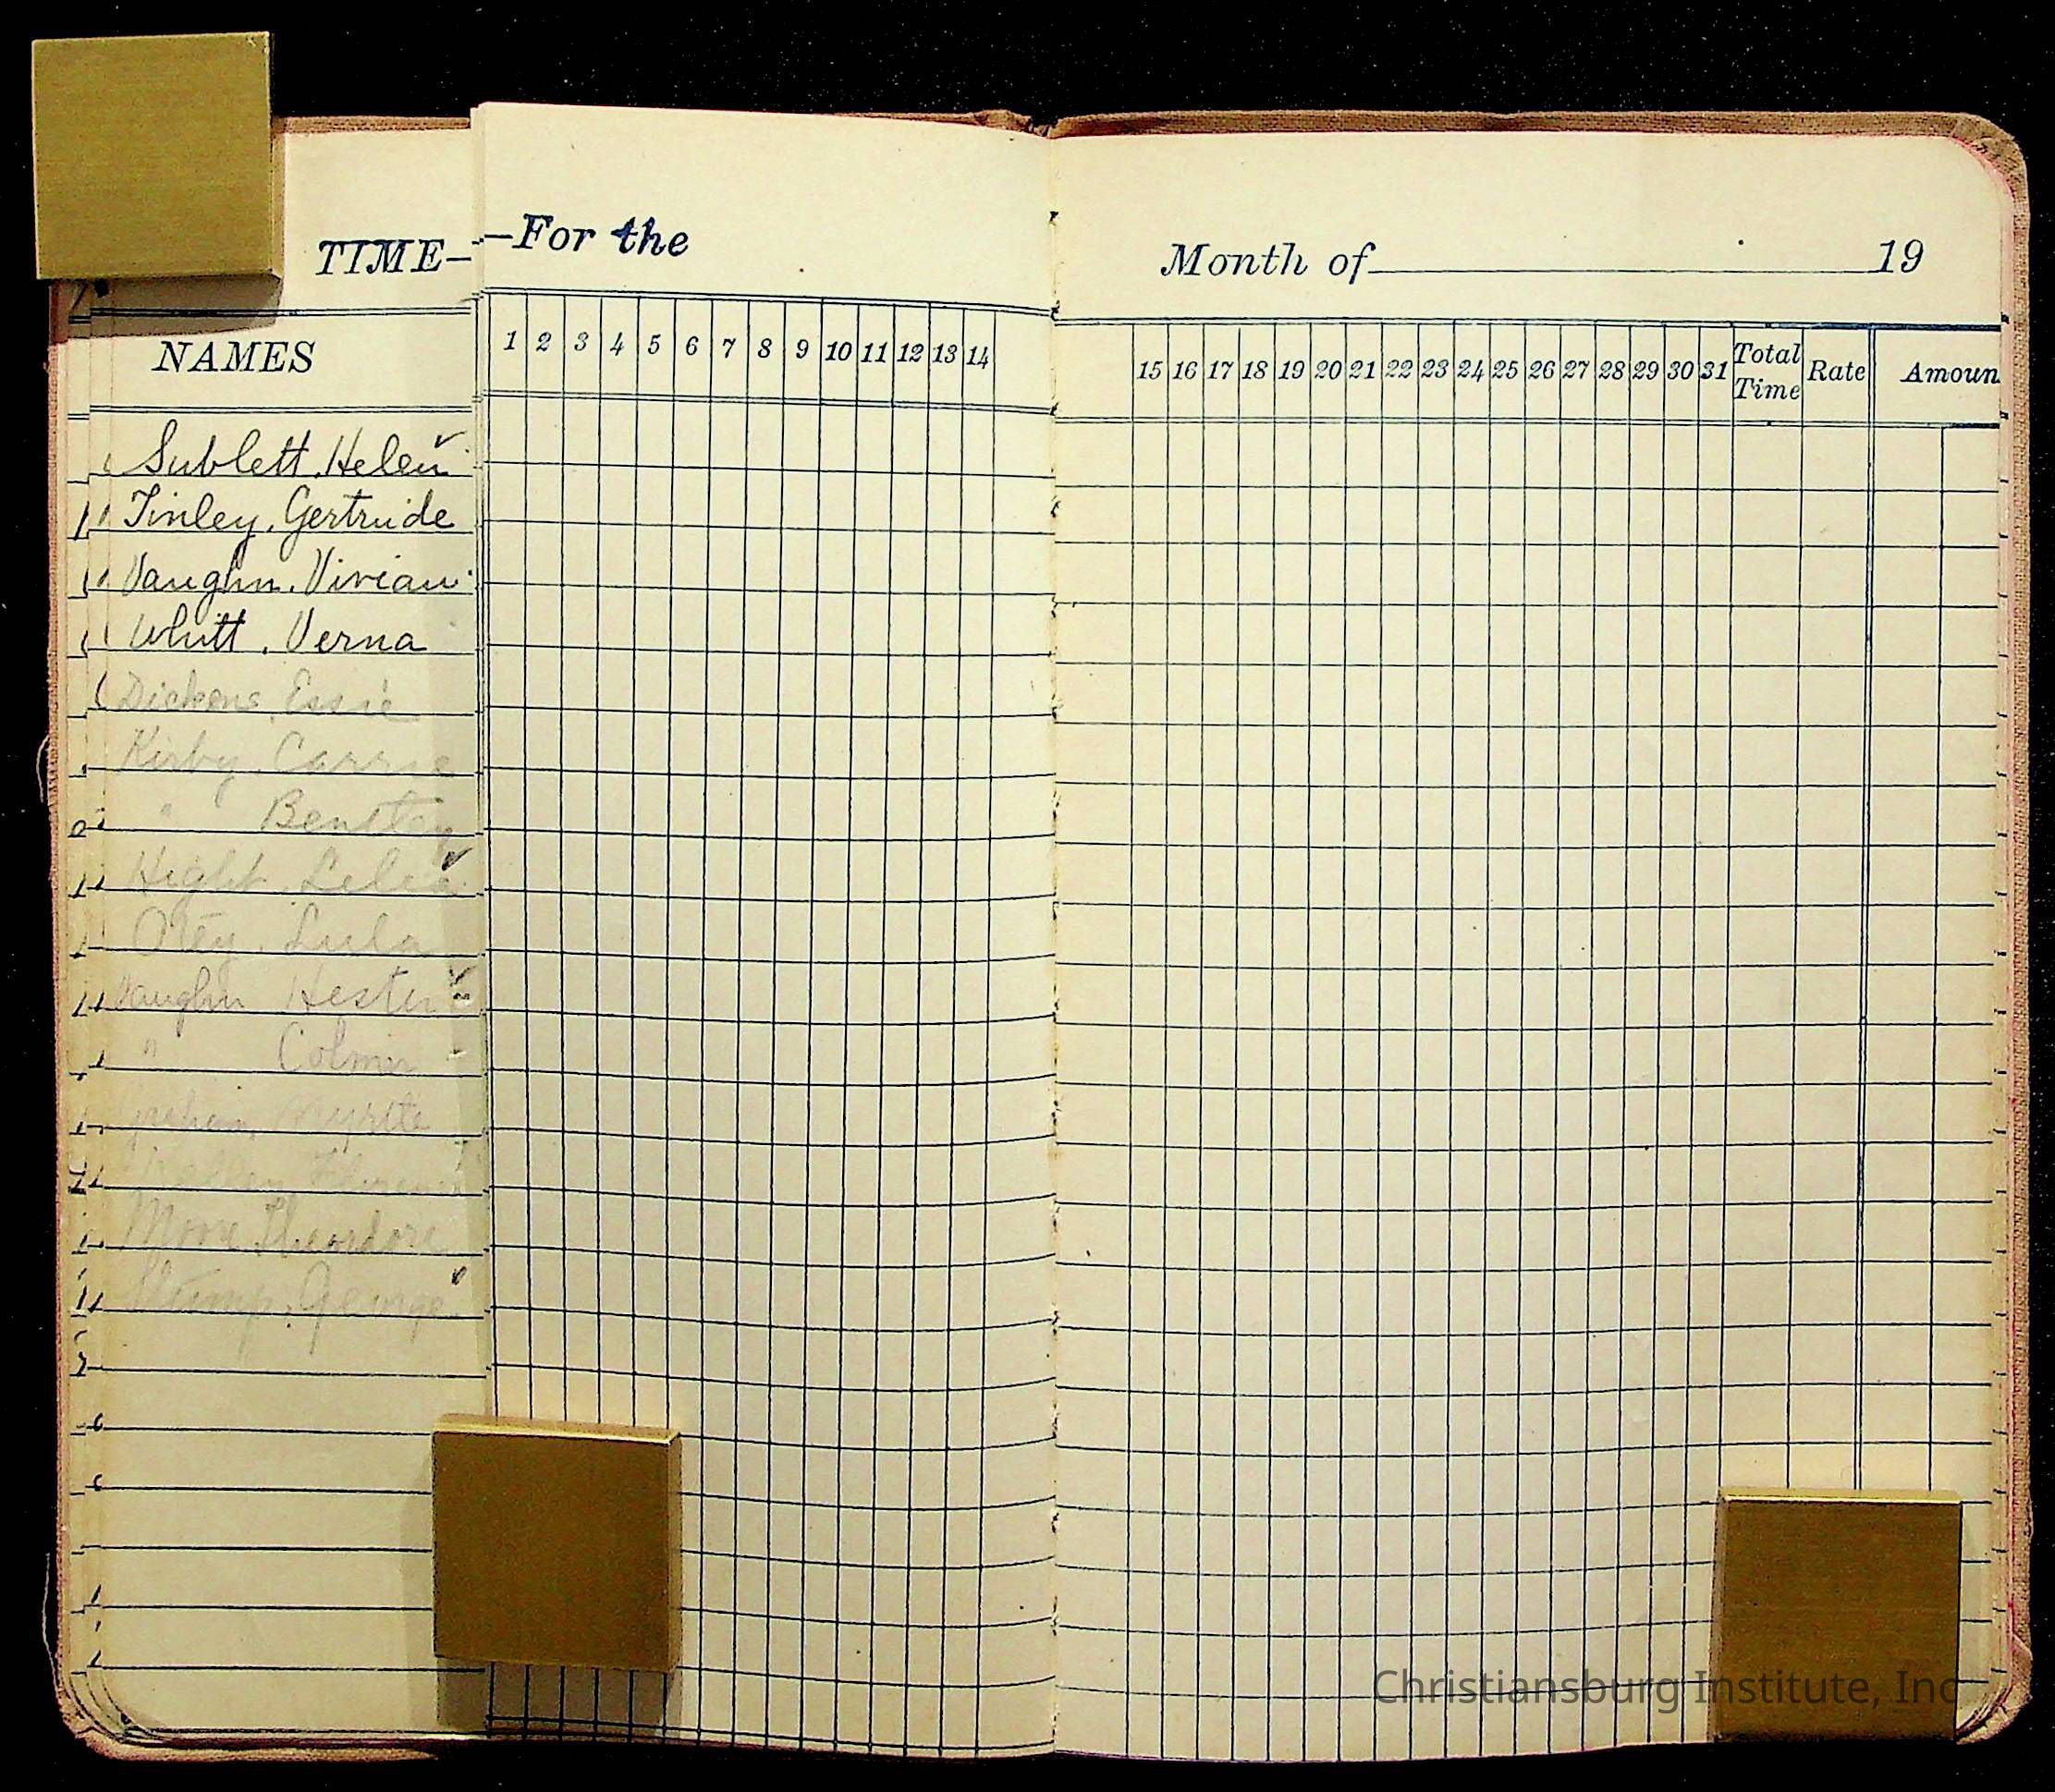 TIME— —For the Month of 19
NAMES 1 2 3 4 5 6 7 8 9 10 11 12 13 14 15 16 17 18 19 20 21 22 23 24 25 26 27 28 29 30 31 Total Time Rate Amoun
Sublett, Helen
Tinley, Gertrude
Vaughn, Vivian
Whitt, Verna
Dickens, Essie
Kirby, Carrie
" Bentley
Hight, Lelia
Otey, Lula
Vaughn Hester
" Colmer
Myrtle
Moore Theordore
Stump, George
Christiansburg Institute, Inc